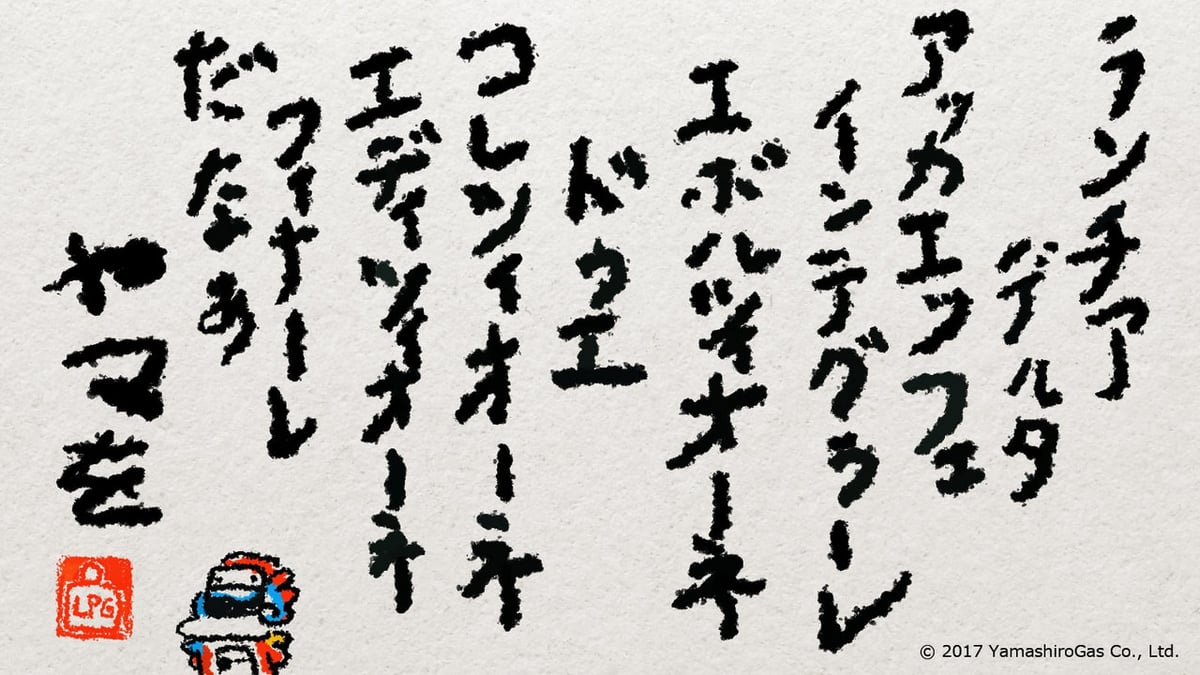 ランチア
デルタ
アッカエッフェ
インテグラーレ
エボルツィオーネ
ドゥエ
コレツィオーネ
エディツィオーネ
フィナーレ
だなぁ
やマを
LPG
© 2017 YamashiroGas Co., Ltd.